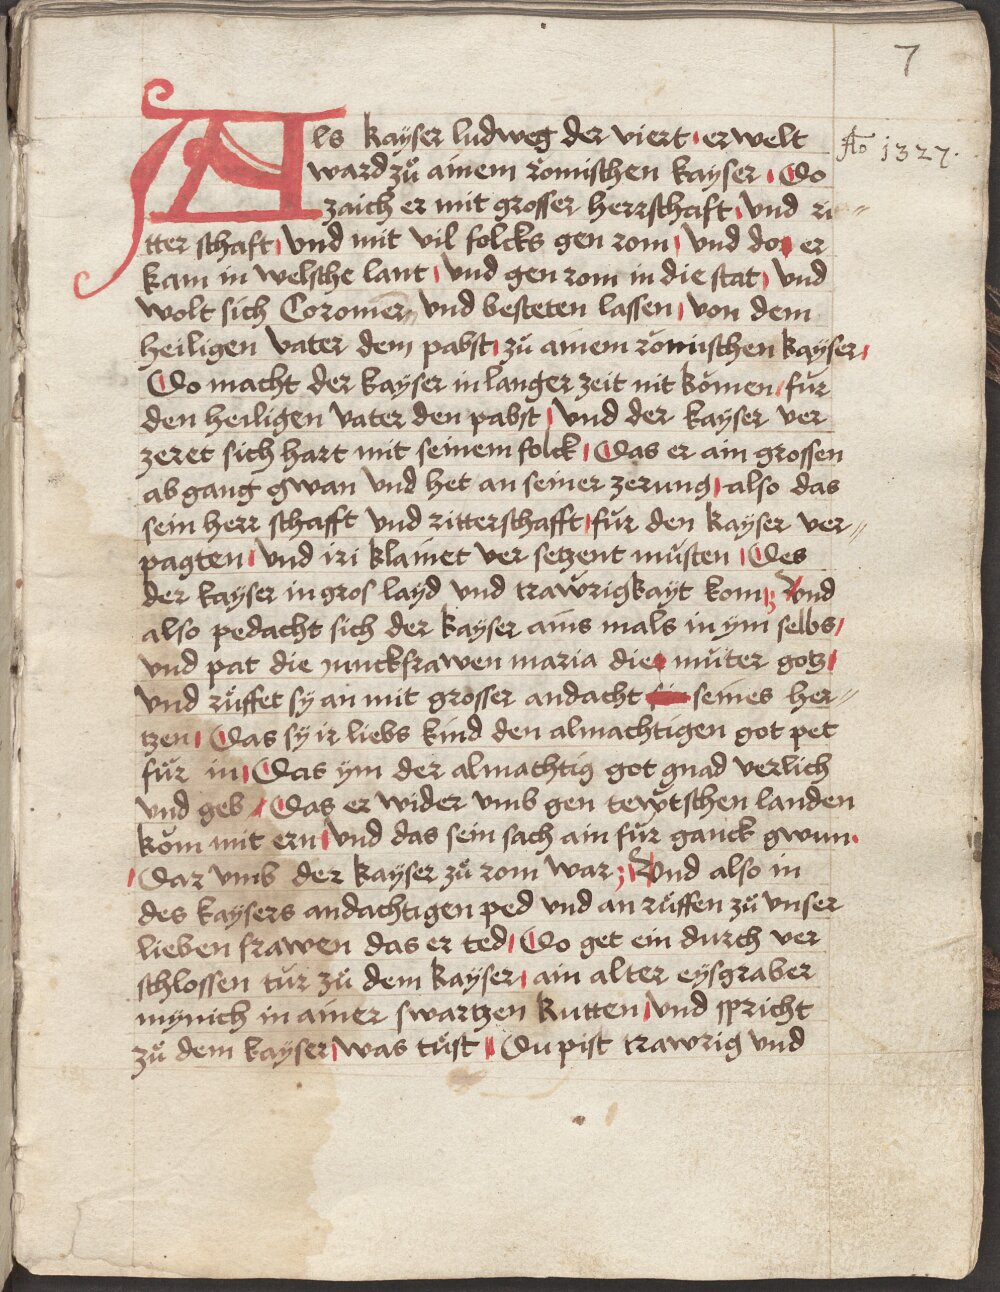 7
Als kayser ludweg der viert erwelt
Ao 1327.
ward zů ainem römischen kayser Do
zaich er mit grosser herrschaft Vnd ri=
tter schaft Vnd mit vil folcks gen rom Vnd do er
kam in welsche lant Vnd gen rom in die stat Vnd
wolt sich Coronier Vnd besteten lassen von dem
heiligen Vater dem pabst zů ainem römischen kayser
Do macht der kayser in langer zeit nit kömen für
den heiligen Vater den pabst Vnd der kayser ver
zeret sich hart mit seinem folck Das er ain grossen
ab gang gwan Vnd het an seiner zerung also das
sein herr schafft Vnd ritterschafft für den kayser ver=
pagten Vnd iri klainet ver setzent müsten Des
der kayser in gros layd Vnd trawrigkayt kom Vnd
also pedacht sich der kayser ains mals in ym selbs
Vnd pat die junckfrawen maria die můter gotz
Vnd rüffet sy an mit grosser andacht seines her=
tzen Das sy ir liebs kind den almachtigen got pet
für in Das ym der almachtig got gnad verlich
Vnd geb Das er wider vmb gen tewtschen landen
köm mit ern Vnd das sein sach ain für ganck gwun
Dar vmb der kayser zů rom war Vnd also in
des kaysers andachtigen ped vnd an rüffen zů vnser
lieben frawen das er ted Do get ein durch ver
schlossen tür zů dem kayser ain alter eysgraber
mynich in ainer swartzen kutten Vnd spricht
zů dem kayser was tüst Du pist trawrig vnd